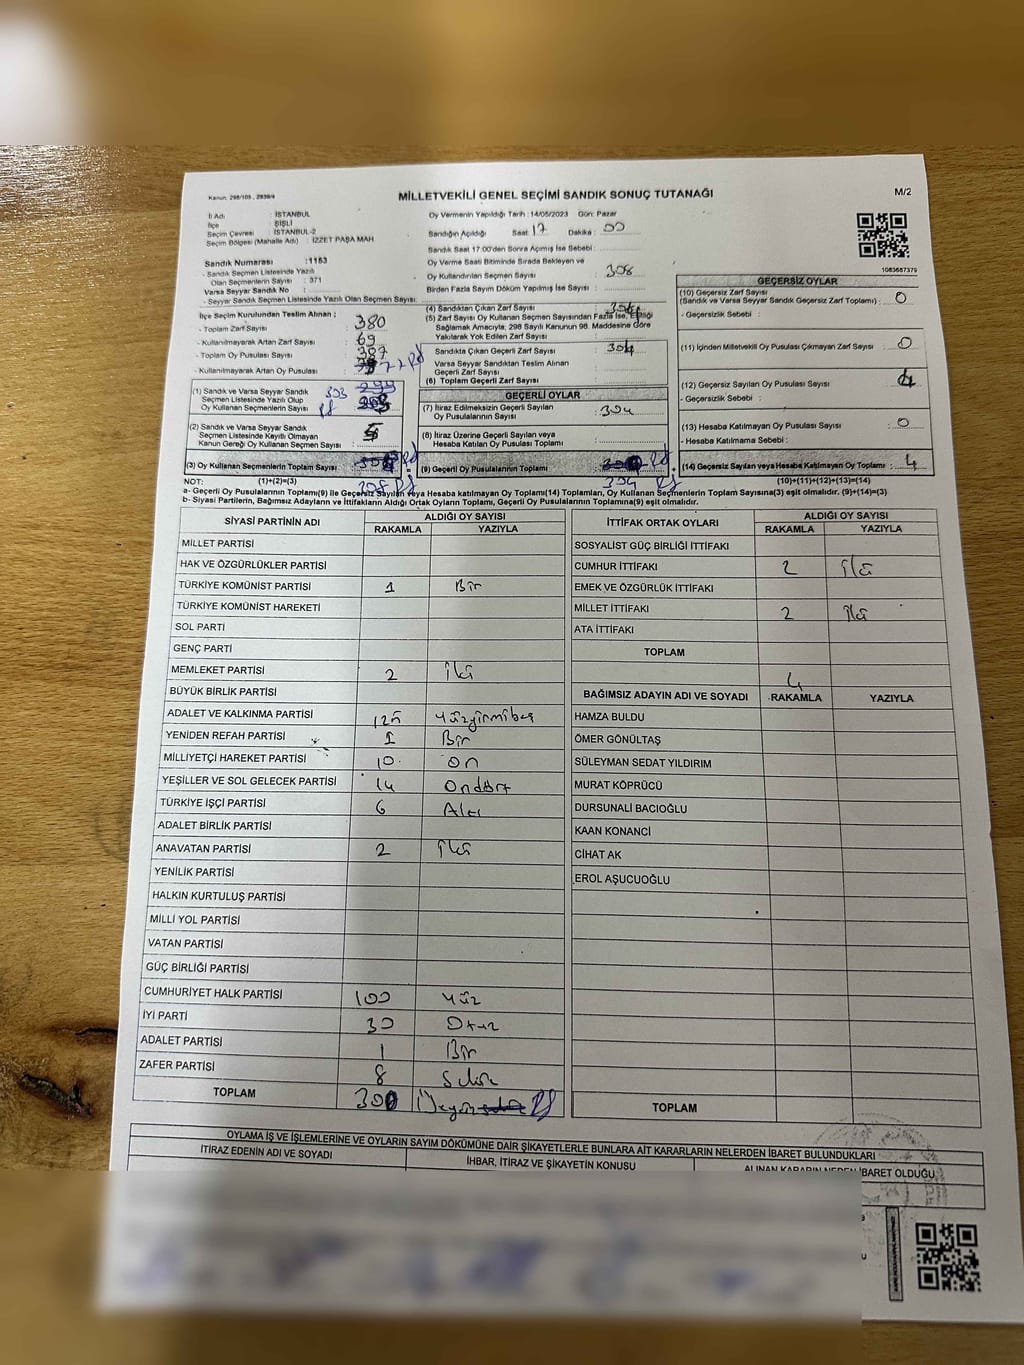 Kanun: 298/105 , 2839/4
MİLLETVEKİLİ GENEL SEÇİMİ SANDIK SONUÇ TUTANAĞI
M/2
İl Adı : İSTANBUL
İlçe : ŞİŞLİ
Seçim Çevresi : İSTANBUL-2
Seçim Bölgesi (Mahalle Adı) : İZZET PAŞA MAH
Sandık Numarası : 1153
- Sandık Seçmen Listesinde Yazılı
Olan Seçmenlerin Sayısı : 371
Varsa Seyyar Sandık No :
- Seyyar Sandık Seçmen Listesinde Yazılı Olan Seçmen Sayısı:
Oy Vermenin Yapıldığı Tarih : 14/05/2023 Gün: Pazar
Sandığın Açıldığı Saat : 17 Dakika : 00
Sandık Saat 17:00'den Sonra Açımış İse Sebebi :
Oy Verme Saati Bitiminde Sırada Bekleyen ve
Oy Kullandırılan Seçmen Sayısı : 308
Birden Fazla Sayım Döküm Yapılmış İse Sayısı :
1083687379
İlçe Seçim Kurulundan Teslim Alınan ;
- Toplam Zarf Sayısı : 380
- Kullanılmayarak Artan Zarf Sayısı : 69
- Toplam Oy Pusulası Sayısı : 387
- Kullanılmayarak Artan Oy Pusulası :
(1) Sandık ve Varsa Seyyar Sandık
Seçmen Listesinde Yazılı Olup
Oy Kullanan Seçmenlerin Sayısı : 303
(2) Sandık ve Varsa Seyyar Sandık
Seçmen Listesinde Kayıtlı Olmayan
Kanun Gereği Oy Kullanan Seçmen Sayısı : 5
(3) Oy Kullanan Seçmenlerin Toplam Sayısı : 308
(4) Sandıktan Çıkan Zarf Sayısı :
(5) Zarf Sayısı Oy Kullanan Seçmen Sayısından Fazla İse, Eşitliği
Sağlamak Amacıyla; 298 Sayılı Kanunun 98. Maddesine Göre
Yakılarak Yok Edilen Zarf Sayısı :
Sandıkta Çıkan Geçerli Zarf Sayısı : 304
Varsa Seyyar Sandıktan Teslim Alınan
Geçerli Zarf Sayısı
(6) Toplam Geçerli Zarf Sayısı :
GEÇERLİ OYLAR
(7) İtiraz Edilmeksizin Geçerli Sayılan
Oy Pusulalarının Sayısı : 304
(8) İtiraz Üzerine Geçerli Sayılan veya
Hesaba Katılan Oy Pusulası Toplamı :
(9) Geçerli Oy Pusulalarının Toplamı : 304
GEÇERSİZ OYLAR
(10) Geçersiz Zarf Sayısı
(Sandık ve Varsa Seyyar Sandık Geçersiz Zarf Toplamı) : 0
- Geçersizlik Sebebi :
(11) İçinden Milletvekili Oy Pusulası Çıkmayan Zarf Sayısı : 0
(12) Geçersiz Sayılan Oy Pusulası Sayısı : 4
- Geçersizlik Sebebi :
(13) Hesaba Katılmayan Oy Pusulası Sayısı : 0
- Hesaba Katılmama Sebebi :
(14) Geçersiz Sayılan veya Hesaba Katılmayan Oy Toplamı : 4
NOT: (1)+(2)=(3) (10)+(11)+(12)+(13)=(14)
a- Geçerli Oy Pusulalarının Toplamı(9) ile Geçersiz Sayılan veya Hesaba katılmayan Oy Toplamı(14) Toplamları, Oy Kullanan Seçmenlerin Toplam Sayısına(3) eşit olmalıdır. (9)+(14)=(3)
b- Siyasi Partilerin, Bağımsız Adayların ve İttifakların Aldığı Ortak Oyların Toplamı, Geçerli Oy Pusulalarının Toplamına(9) eşit olmalıdır.
SİYASİ PARTİNİN ADI ALDIĞI OY SAYISI
RAKAMLA YAZIYLA
MİLLET PARTİSİ
HAK VE ÖZGÜRLÜKLER PARTİSİ
TÜRKİYE KOMÜNİST PARTİSİ 1 Bir
TÜRKİYE KOMÜNİST HAREKETİ
SOL PARTİ
GENÇ PARTİ
MEMLEKET PARTİSİ 2 İki
BÜYÜK BİRLİK PARTİSİ
ADALET VE KALKINMA PARTİSİ 125 Yüzyirmibeş
YENİDEN REFAH PARTİSİ 1 Bir
MİLLİYETÇİ HAREKET PARTİSİ 10 on
YEŞİLLER VE SOL GELECEK PARTİSİ 14 Ondört
TÜRKİYE İŞÇİ PARTİSİ 6 Altı
ADALET BİRLİK PARTİSİ
ANAVATAN PARTİSİ 2 İki
YENİLİK PARTİSİ
HALKIN KURTULUŞ PARTİSİ
MİLLİ YOL PARTİSİ
VATAN PARTİSİ
GÜÇ BİRLİĞİ PARTİSİ
CUMHURİYET HALK PARTİSİ 100 Yüz
İYİ PARTİ 30 Otuz
ADALET PARTİSİ 1 Bir
ZAFER PARTİSİ 8 Sekiz
TOPLAM 300 Üçyüz
İTTİFAK ORTAK OYLARI ALDIĞI OY SAYISI
RAKAMLA YAZIYLA
SOSYALİST GÜÇ BİRLİĞİ İTTİFAKI
CUMHUR İTTİFAKI 2 İki
EMEK VE ÖZGÜRLÜK İTTİFAKI
MİLLET İTTİFAKI 2 İki
ATA İTTİFAKI
TOPLAM
4
BAĞIMSIZ ADAYIN ADI VE SOYADI RAKAMLA YAZIYLA
HAMZA BULDU
ÖMER GÖNÜLTAŞ
SÜLEYMAN SEDAT YILDIRIM
MURAT KÖPRÜCÜ
DURSUNALİ BACIOĞLU
KAAN KONANCİ
CİHAT AK
EROL AŞUCUOĞLU
TOPLAM
OYLAMA İŞ VE İŞLEMLERİNE VE OYLARIN SAYIM DÖKÜMÜNE DAİR ŞİKAYETLERLE BUNLARA AİT KARARLARIN NELERDEN İBARET BULUNDUKLARI
İTİRAZ EDENİN ADI VE SOYADI İHBAR, İTİRAZ VE ŞİKAYETİN KONUSU ALINAN KARARIN NEDEN İBARET OLDUĞU